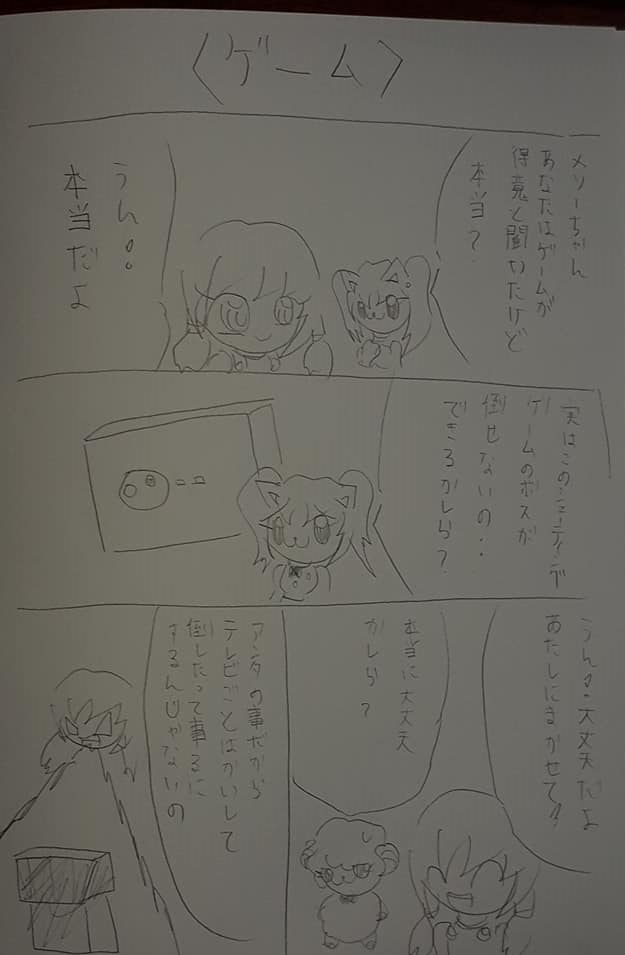 〈ゲーム〉
メリーちゃん
あなたはゲームが
得意と聞いたけど
本当?
うん!
本当だよ
実はこのシューティング
ゲームのボスが
倒せないの・・
できるかしら?
うん!大丈夫だよ
あたしにまかせて!!
本当に大丈夫
かしら?
アンタの事だから
テレビごとはかいして
倒したって事るに
するんじゃないの